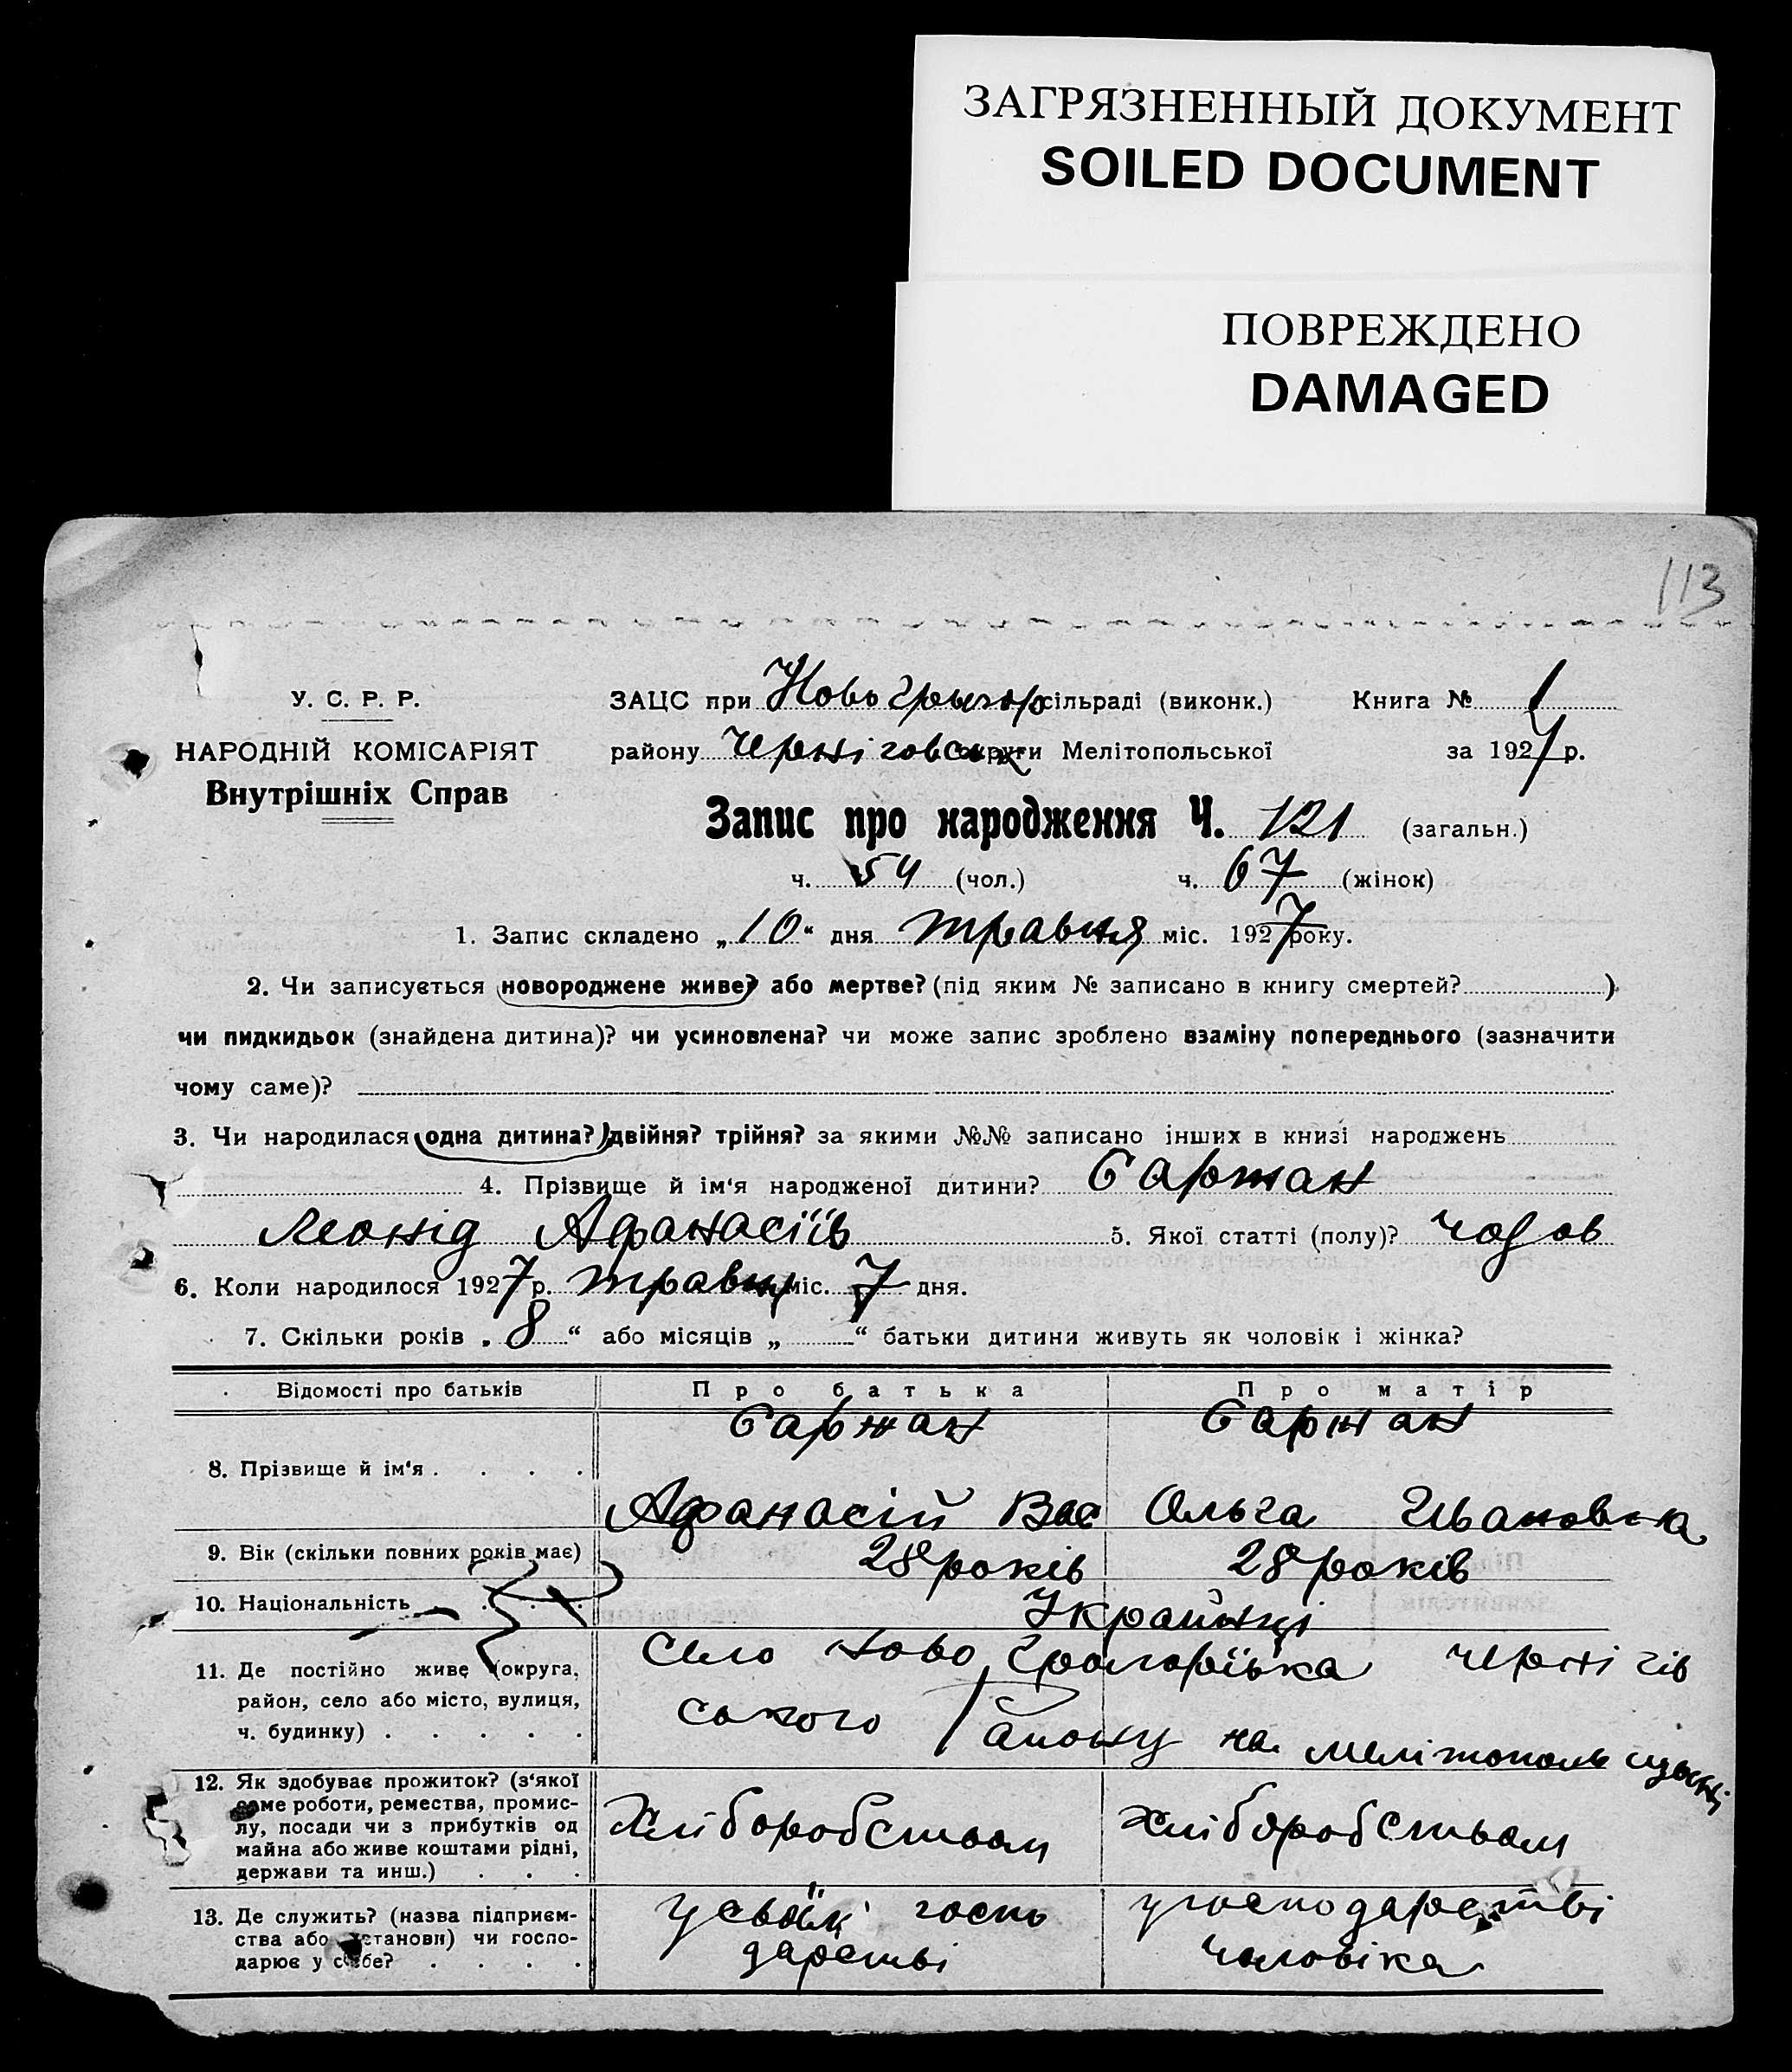 ЗАГРЯЗНЕННЫЙ ДОКУМЕНТ
SOILED DOCUMENT
ПОВРЕЖДЕНО
DAMAGED
113
У. С. Р. Р.
НАРОДНІЙ КОМІСАРІЯТ
Внутрішніх Справ
ЗАЦС при Ново Григор сільраді (виконк.) Книга № 1
району Черніговськ округи Мелітопольської за 1927 р.
Запис про народження Ч. 121 (загальн.)
ч. 54 (чол.) ч. 67 (жінок)
1. Запис складено „10“ дня травня міс. 1927 року.
2. Чи записується новороджене живе? або мертве? (під яким № записано в книгу смертей? )
чи пидкидьок (знайдена дитина)? чи усиновлена? чи може запис зроблено взаміну попереднього (зазначити
чому саме)?
3. Чи народилася одна дитина? двійня? трійня? за якими №№ записано інших в книзі народжень
4. Прізвище й ім'я народженої дитини? Саржан
Леонід Афанасіїв 5. Якої статті (полу)? чолов
6. Коли народилося 1927 р. травня міс. 7 дня.
7. Скільки років „8“ або місяців „ “ батьки дитини живуть як чоловік і жінка?
Відомості про батьків Про батька Про матір
8. Прізвище й ім'я . . . . Саржан Саржан
Афанасій Вас Ольга Ивановна
9. Вік (скільки повних років має) 28 років 28 років
10. Національність Українці
11. Де постійно живе (округа, район, село або місто, вулиця, ч. будинку) . . . . . село Ново Григорївка Чернігів
ського району на Мелітопольщині
12. Як здобуває прожиток? (з'якої саме роботи, ремества, промислу, посади чи з прибутків од майна або живе коштами рідні, держави та инш.) . . . Хліборобством хліборобством
13. Де служить? (назва підприємства або установи) чи господарює у себе? . . . . у своїй госпо у господарстві
дарстві чоловіка